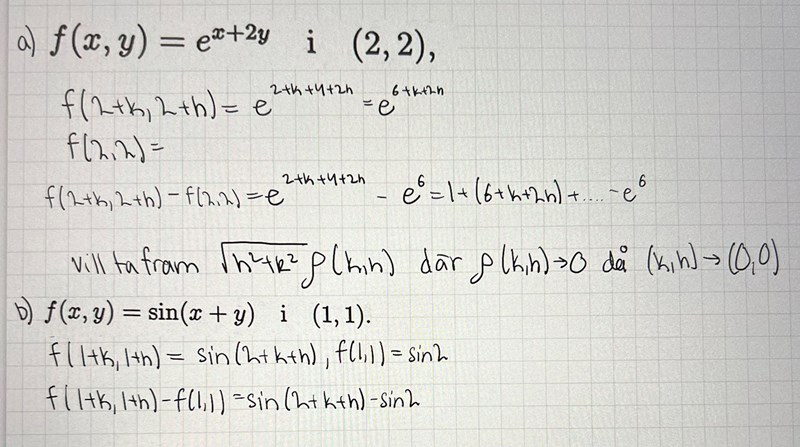 a) f(x, y) = e^{x+2y} i (2, 2),
f(2+k, 2+h) = e^{2+k+4+2h} = e^{6+k+2h}
f(2,2) =
f(2+k, 2+h) - f(2,2) = e^{2+k+4+2h} - e^6 = 1+(6+k+2h)+.... - e^6
vill ta fram √(h²+k²) ρ(k,h) där ρ(k,h)→0 då (k,h)→(0,0)
b) f(x, y) = sin(x + y) i (1, 1).
f(1+k, 1+h) = sin(2+k+h), f(1,1) = sin2
f(1+k, 1+h) - f(1,1) = sin(2+k+h) - sin2